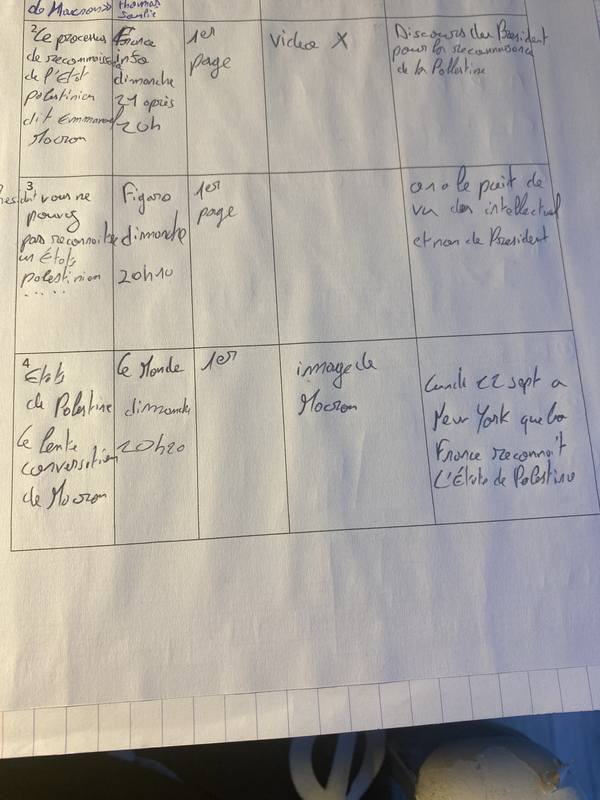 de Macron»
thomas
2
Le processus
de reconnaiss
de l'Etat
palestinien
dit Emmanuel
Macron
France
info
dimanche
21 après
20h
1er
page
video X
Discours du President
pour la reconnaissance
de la Pallestine
3
president vous ne
pouvez
pas reconnaitre
un États
palestinien
.....
Figaro
dimanche
20h10
1er
page
on a le point de
vu des intellectuel
et non de President
4
Etats
de Palestine
Le lente
conversation
de Macron
Le Monde
dimanche
20h20
1er
image de
Macron
Lundi 22 sept a
New York que la
France reconnait
L'État de Palestine